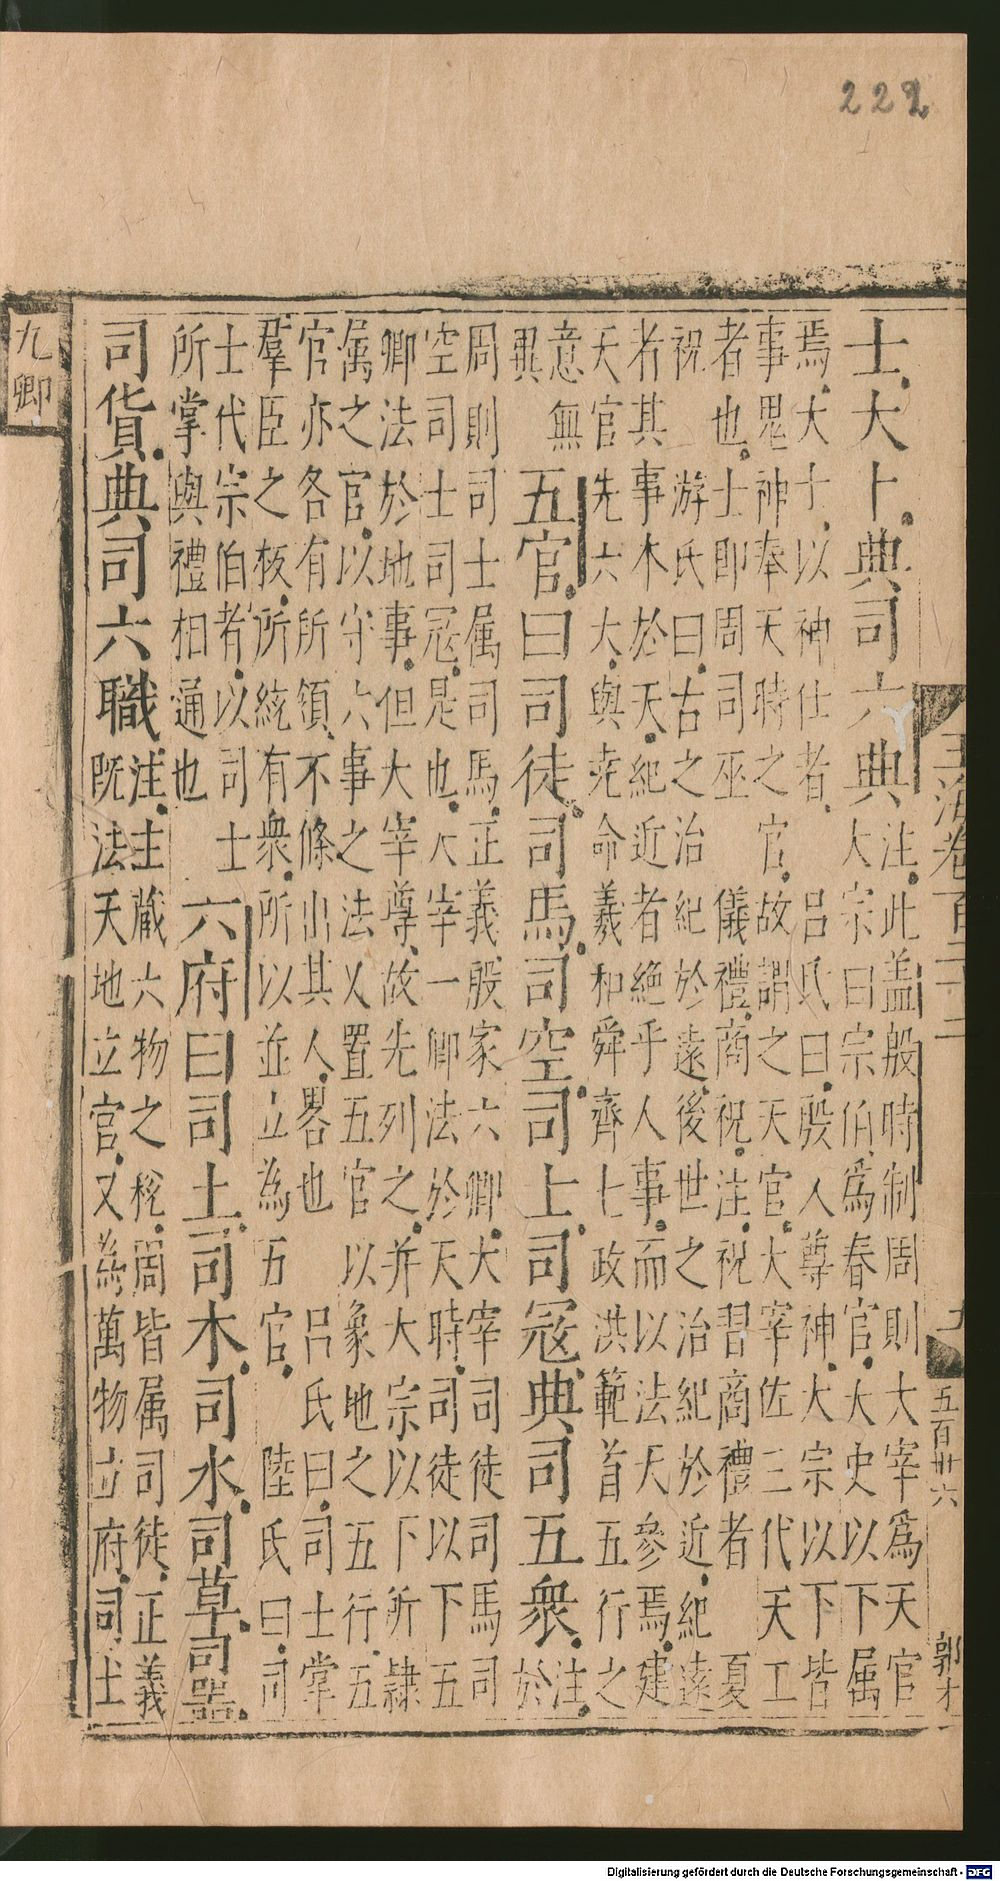 222
士大卜典司六典
注此盖殷時制周則大宰爲天官
大宗曰宗伯爲春官大史以下属
焉大士以神仕者 吕氏曰殷人尊神大宗以下皆
事鬼神奉天時之官故謂之天官大宰佐三代天工
者也士即周司巫 儀禮商祝注祝習商禮者 夏
祝 游氏曰古之治紀於遠後世之治紀於近紀遠
者其事木於天紀近者絶乎人事而以法天參焉建
天官先六大與尭命羲和舜齊七政洪範首五行之
意無
異
五官曰司徒司馬司空司士司冦典司五衆
注
於
周則司士属司馬正義殷家六卿大宰司徒司馬司
空司士司冦是也大宰一卿法於天時司徒以下五
卿法於地事但大宰尊故先列之并大宗以下所隷
属之官以守六事之法乂置五官以象地之五行五
官亦各有所領不條出其人畧也 吕氏曰司士掌
羣臣之板所統有衆所以並立為五官 陸氏曰司
士代宗伯者以司士
所掌與禮相通也
六府曰司土司木司水司草司噐
司貨典司六職
注主藏六物之稅周皆属司徒正義
既法天地立官又為萬物立府司土
九卿
玉海卷百二十二
五百卌六
郭才
Digitalisierung gefördert durch die Deutsche Forschungsgemeinschaft - DFG